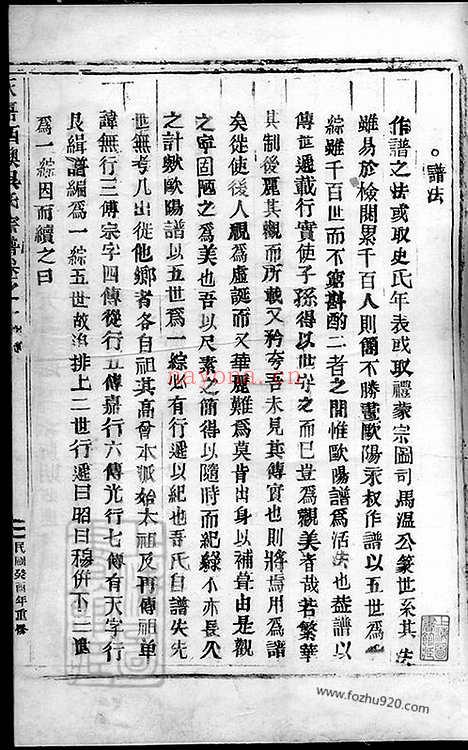 譜法
作譜之法或取史氏年表或取禮蒙宗圖司馬溫公纂世系其法
雖易於檢閱累千百人則圖不勝書歐陽永叔作譜以五世爲一
綜雖千百世而不窮斟酌二者之間惟歐陽譜爲活法也益譜以
傳世遞載行實使子孫得以世守之而已豈爲觀美者哉若繁華
其制後麗其觀而所載又矜夸吾未見其傳實也則將焉用爲譜
矣徙使後人視爲虛誕而又華麗難爲莫肯出身以補葺由是觀
之寧固陋之爲美也吾以尺素之簡得以隨時而紀錄不亦長久
之計歟歐陽譜以五世爲一綜必有行遞以紀也吾氏自譜失先
世無考凡出從他鄉者各自祖其高曾本派始太祖及再傳祖单
諱無行三傳宗字四傳從行五傳嘉行六傳光行七傳有天字行
艮緝譜編爲一綜五世故追排上二世行遞曰昭曰穆併下三進
爲一綜因而續之曰
民國癸酉年重修
nayona.cn
www.fozhu920.com